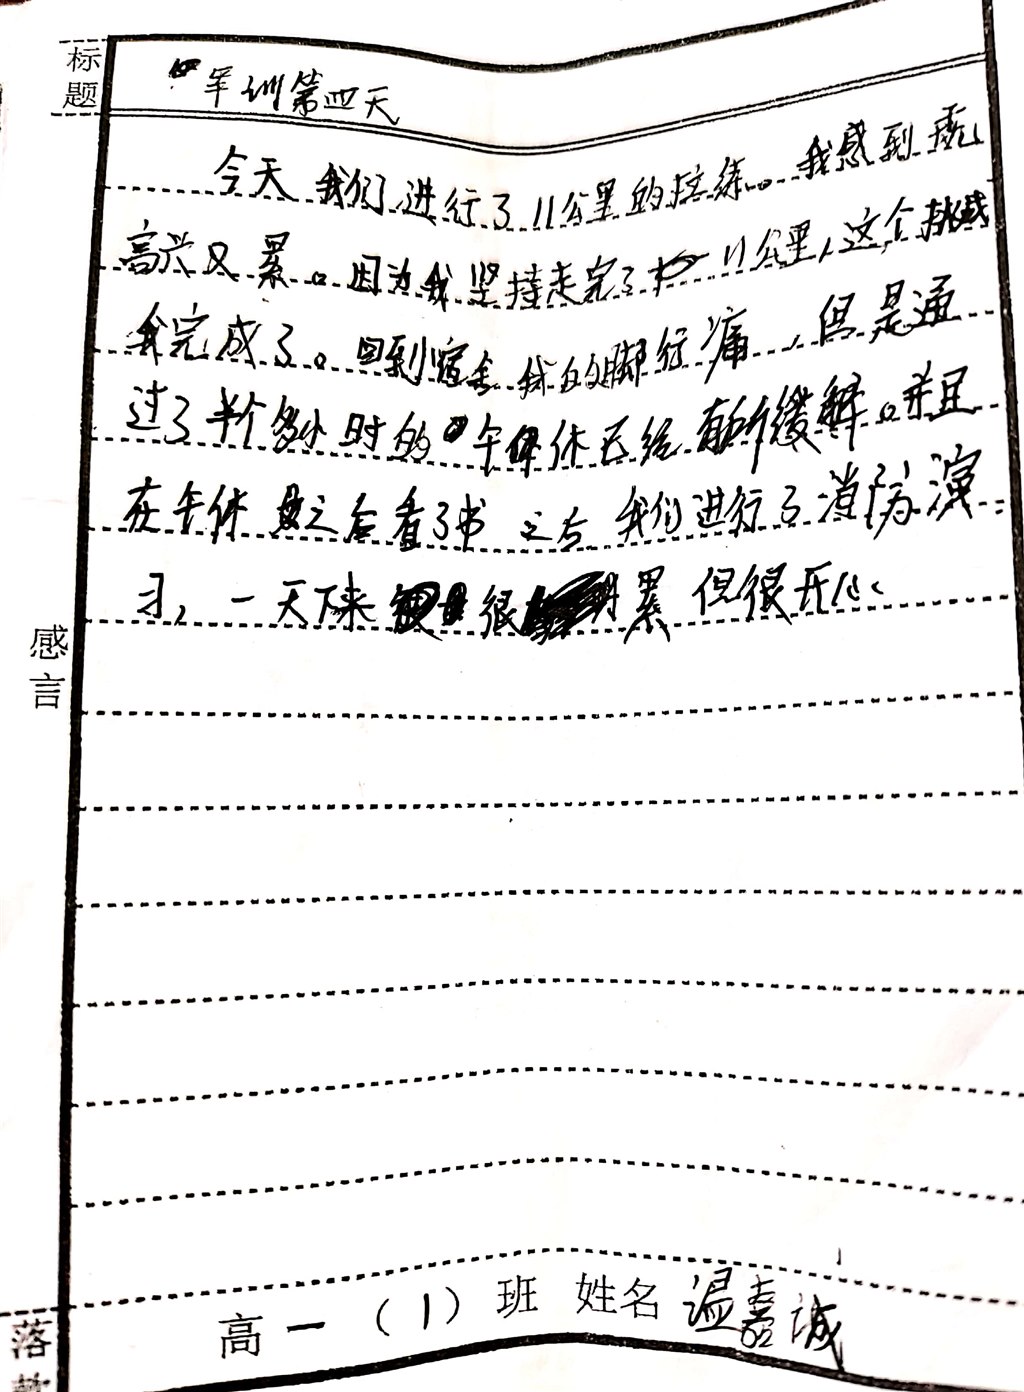 标题
军训第四天
今天我们进行了11公里的拉练。我感到既
高兴又累。因为我坚持走完了11公里,这个挑战
我完成了。回到宿舍我的脚很痛,但是通
过了半个多小时的午休已经有所缓解。并且
在午休之后看了书之后我们进行了消防演
习,一天下来很累但很开心
感言
高一(1)班 姓名 温嘉诚
落款